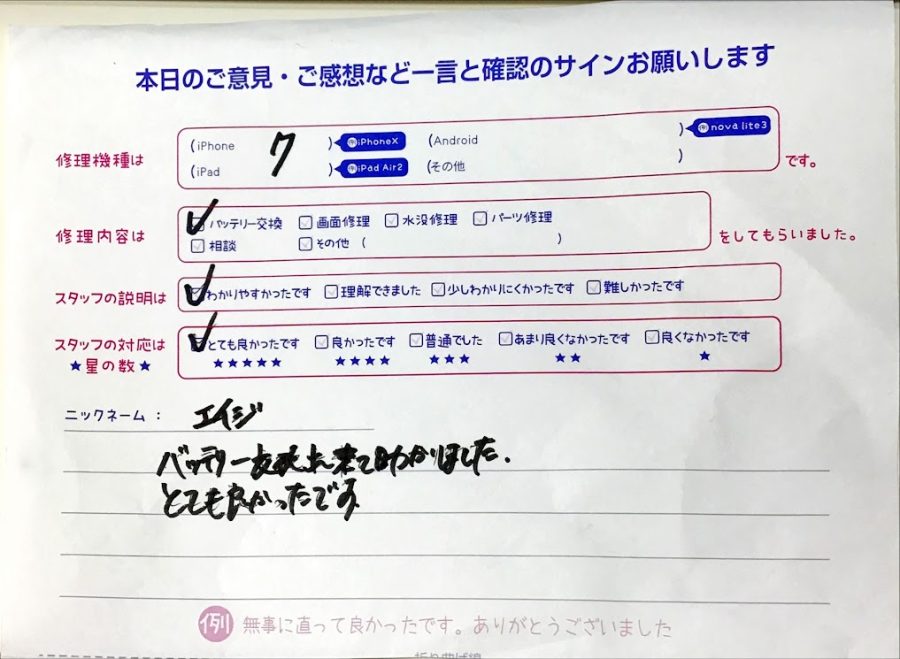 本日のご意見・ご感想など一言と確認のサインお願いします
修理機種は
(iPhone 7 ) 例iPhoneX (Android ) 例nova lite3
(iPad ) 例iPad Air2 (その他 ) です。
修理内容は バッテリー交換 画面修理 水没修理 パーツ修理
相談 その他 ( ) をしてもらいました。
スタッフの説明は わかりやすかったです 理解できました 少しわかりにくかったです 難しかったです
スタッフの対応は とても良かったです 良かったです 普通でした あまり良くなかったです 良くなかったです
★星の数★ ★★★★★ ★★★★ ★★★ ★★ ★
ニックネーム： エイジ
バッテリー交換出来て助かりました.
とても良かったです
例 無事に直って良かったです。ありがとうございました